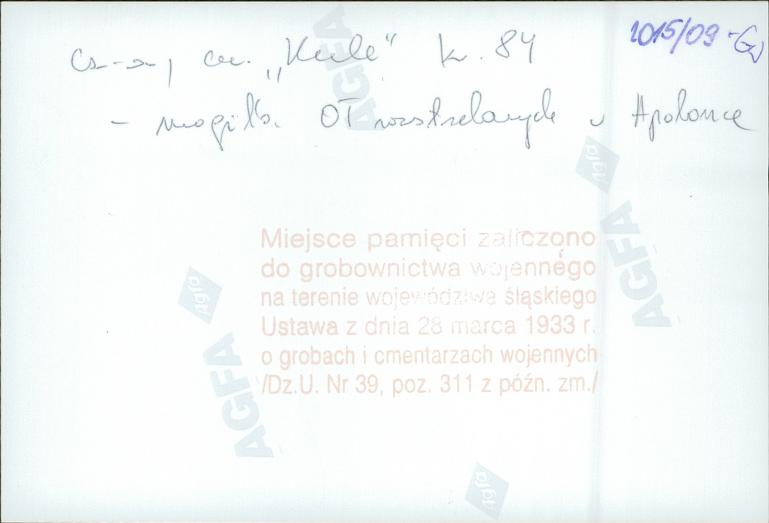 1015/09-G
Cz-a, cm. „Kule” kw. 84
- mogiła OT rozstrzelanych w Apolonce
Miejsce pamięci zaliczono
do grobownictwa wojennego
na terenie województwa śląskiego
Ustawa z dnia 28 marca 1933 r.
o grobach i cmentarzach wojennych
/Dz.U. Nr 39, poz. 311 z późn. zm./
AGFA
Agfa
AGFA
Agfa
AGFA
Agfa